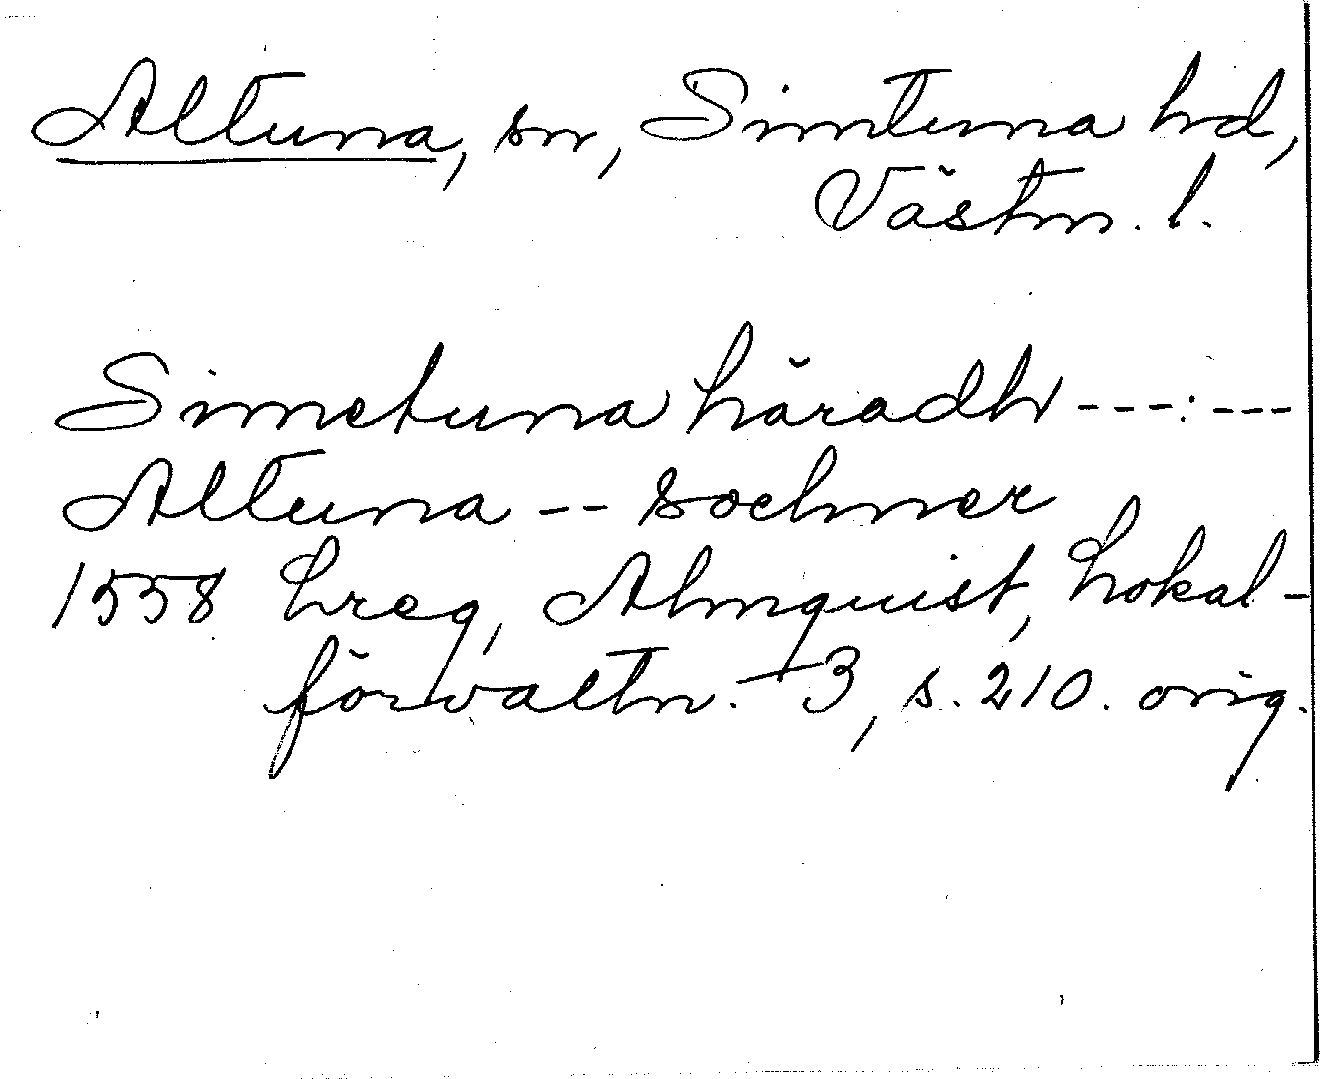 Altuna, sn, Simtuna hd,
Västm. l.
Simetuna häradh ---:---
Altuna -- sochner
1558 Lreg, Almquist, Lokal-
förvaltn. 3, s. 210. orig.